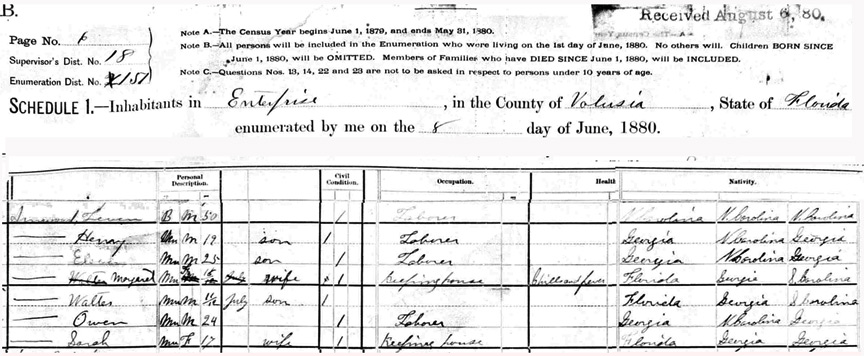 B.
Received August 6, 80.
Page No. 6
Supervisor's Dist. No. 18
Enumeration Dist. No. 151
Note A.—The Census Year begins June 1, 1879, and ends May 31, 1880.
Note B.—All persons will be included in the Enumeration who were living on the 1st day of June, 1880. No others will. Children BORN SINCE
June 1, 1880, will be OMITTED. Members of Families who have DIED SINCE June 1, 1880, will be INCLUDED.
Note C.—Questions Nos. 13, 14, 22 and 23 are not to be asked in respect to persons under 10 years of age.
SCHEDULE 1.—Inhabitants in Enterprise, in the County of Volusia, State of Florida
enumerated by me on the 8 day of June, 1880.
Personal Description. Civil Condition. Occupation. Health Nativity.
B M 50 1 Laborer N Carolina N Carolina
Henry Mu M 19 son 1 Laborer Georgia N Carolina Georgia
Mu M 25 son 1 Laborer Georgia N Carolina Georgia
Walter Margaret Mu July wife 1 Keeping house Chills and fever Florida Georgia S Carolina
Walter Mu M July son 1 Florida Georgia S Carolina
Owen Mu M 24 1 Laborer Georgia N Carolina Georgia
Sarah Mu F 17 wife 1 Keeping house Florida Georgia S Carolina